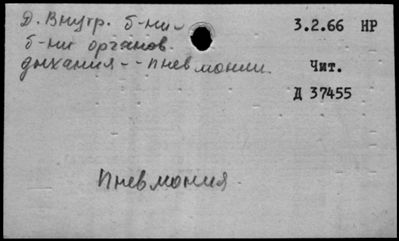 Д. Внутр. б-ни -
б-ни органов
дыхания -- пневмонии.
3.2.66 НР
Чит.
Д 37455
Пневмония.